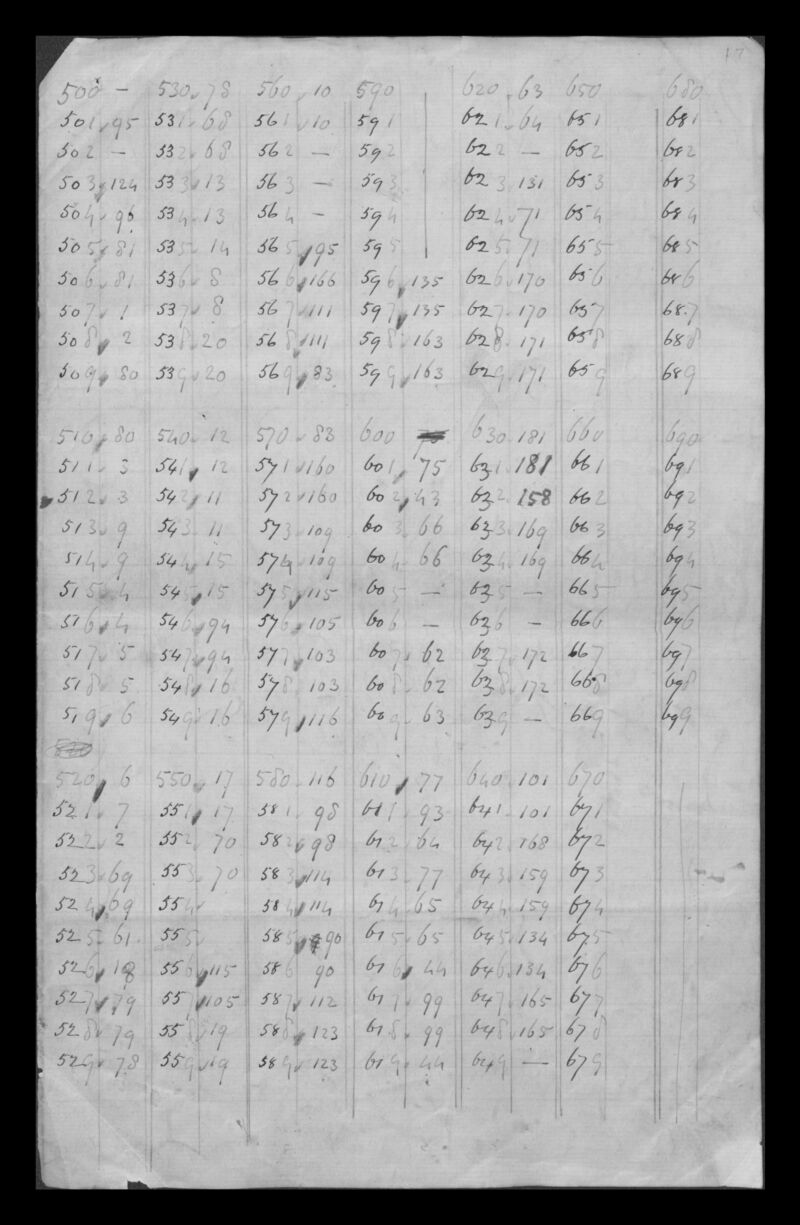 17
500 – 530 78 560 10 590 620 63 650 680
501 95 531 68 561 10 591 621 64 651 681
502 – 532 68 562 – 592 622 – 652 682
503 124 533 13 563 – 593 623 131 653 683
504 96 534 13 564 – 594 624 71 654 684
505 81 535 14 565 95 595 625 71 655 685
506 81 536 8 566 166 596 135 626 170 656 686
507 1 537 8 567 111 597 135 627 170 657 687
508 2 538 20 568 111 598 163 628 171 658 688
509 80 539 20 569 83 599 163 629 171 659 689
510 80 540 12 570 83 600 630 181 660 690
511 3 541 12 571 160 601 75 631 181 661 691
512 3 542 11 572 160 602 43 632 158 662 692
513 9 543 11 573 109 603 66 633 169 663 693
514 9 544 15 574 109 604 66 634 169 664 694
515 4 545 15 575 115 605 – 635 – 665 695
516 4 546 94 576 105 606 – 636 – 666 696
517 5 547 94 577 103 607 62 637 172 667 697
518 5 548 16 578 103 608 62 638 172 668 698
519 6 549 16 579 116 609 63 639 – 669 699
520 6 550 17 580 116 610 77 640 101 670
521 7 551 17 581 98 611 93 641 101 671
522 2 552 70 582 98 612 64 642 168 672
523 69 553 70 583 114 613 77 643 159 673
524 69 554 584 114 614 65 644 159 674
525 61 555 585 90 615 65 645 134 675
526 18 556 115 586 90 616 44 646 134 676
527 79 557 105 587 112 617 99 647 165 677
528 79 558 19 588 123 618 99 648 165 678
529 78 559 19 589 123 619 44 649 – 679